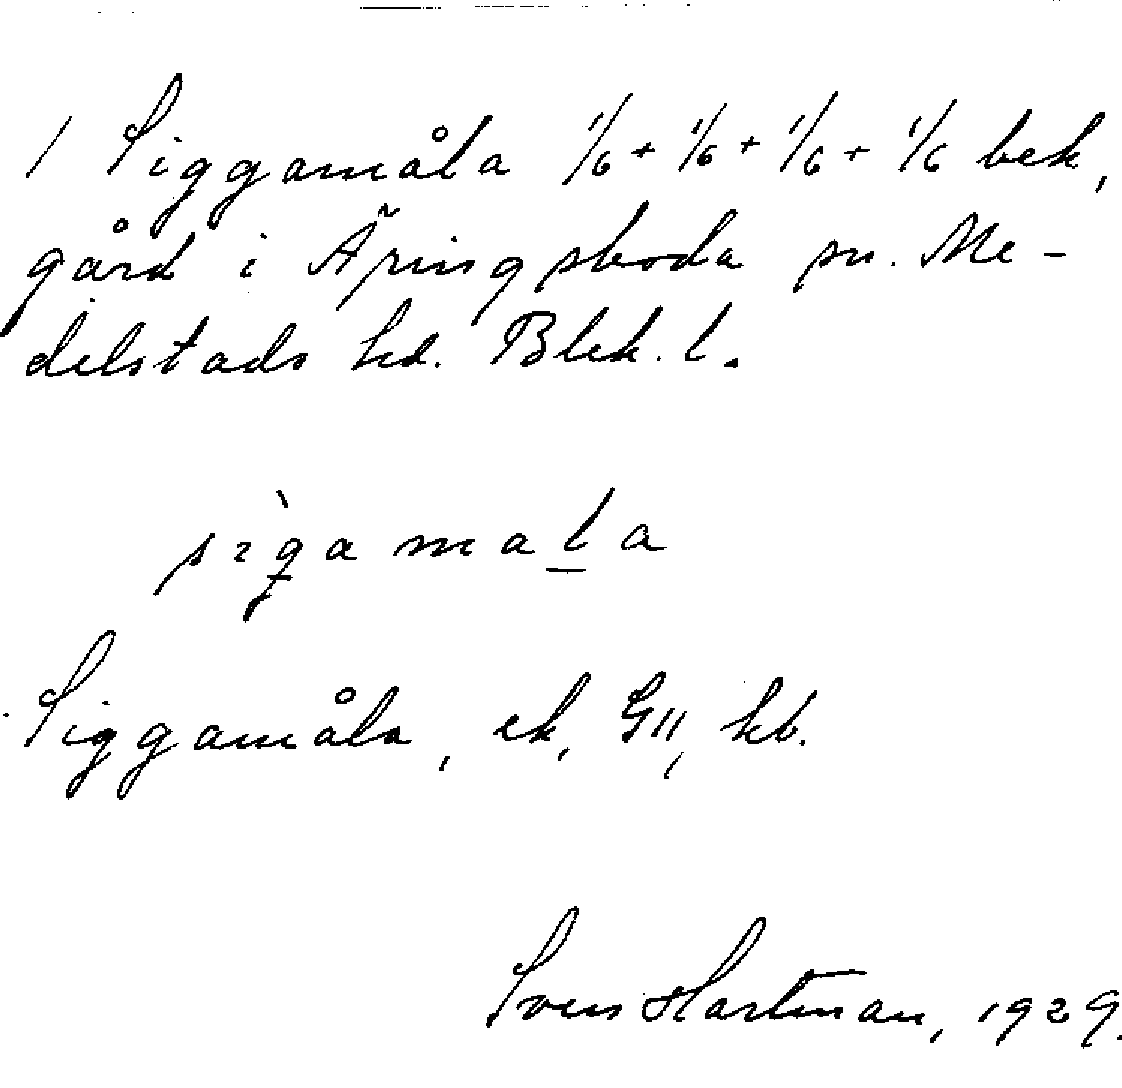 1 Siggamåla 1/6 + 1/6 + 1/6 + 1/6 bek,
gård i Äringsboda sn. Me-
delstads hd. Blek. l.
sìgamala
Siggamåla, ek, GII, kb.
Sven Hartman, 1929.